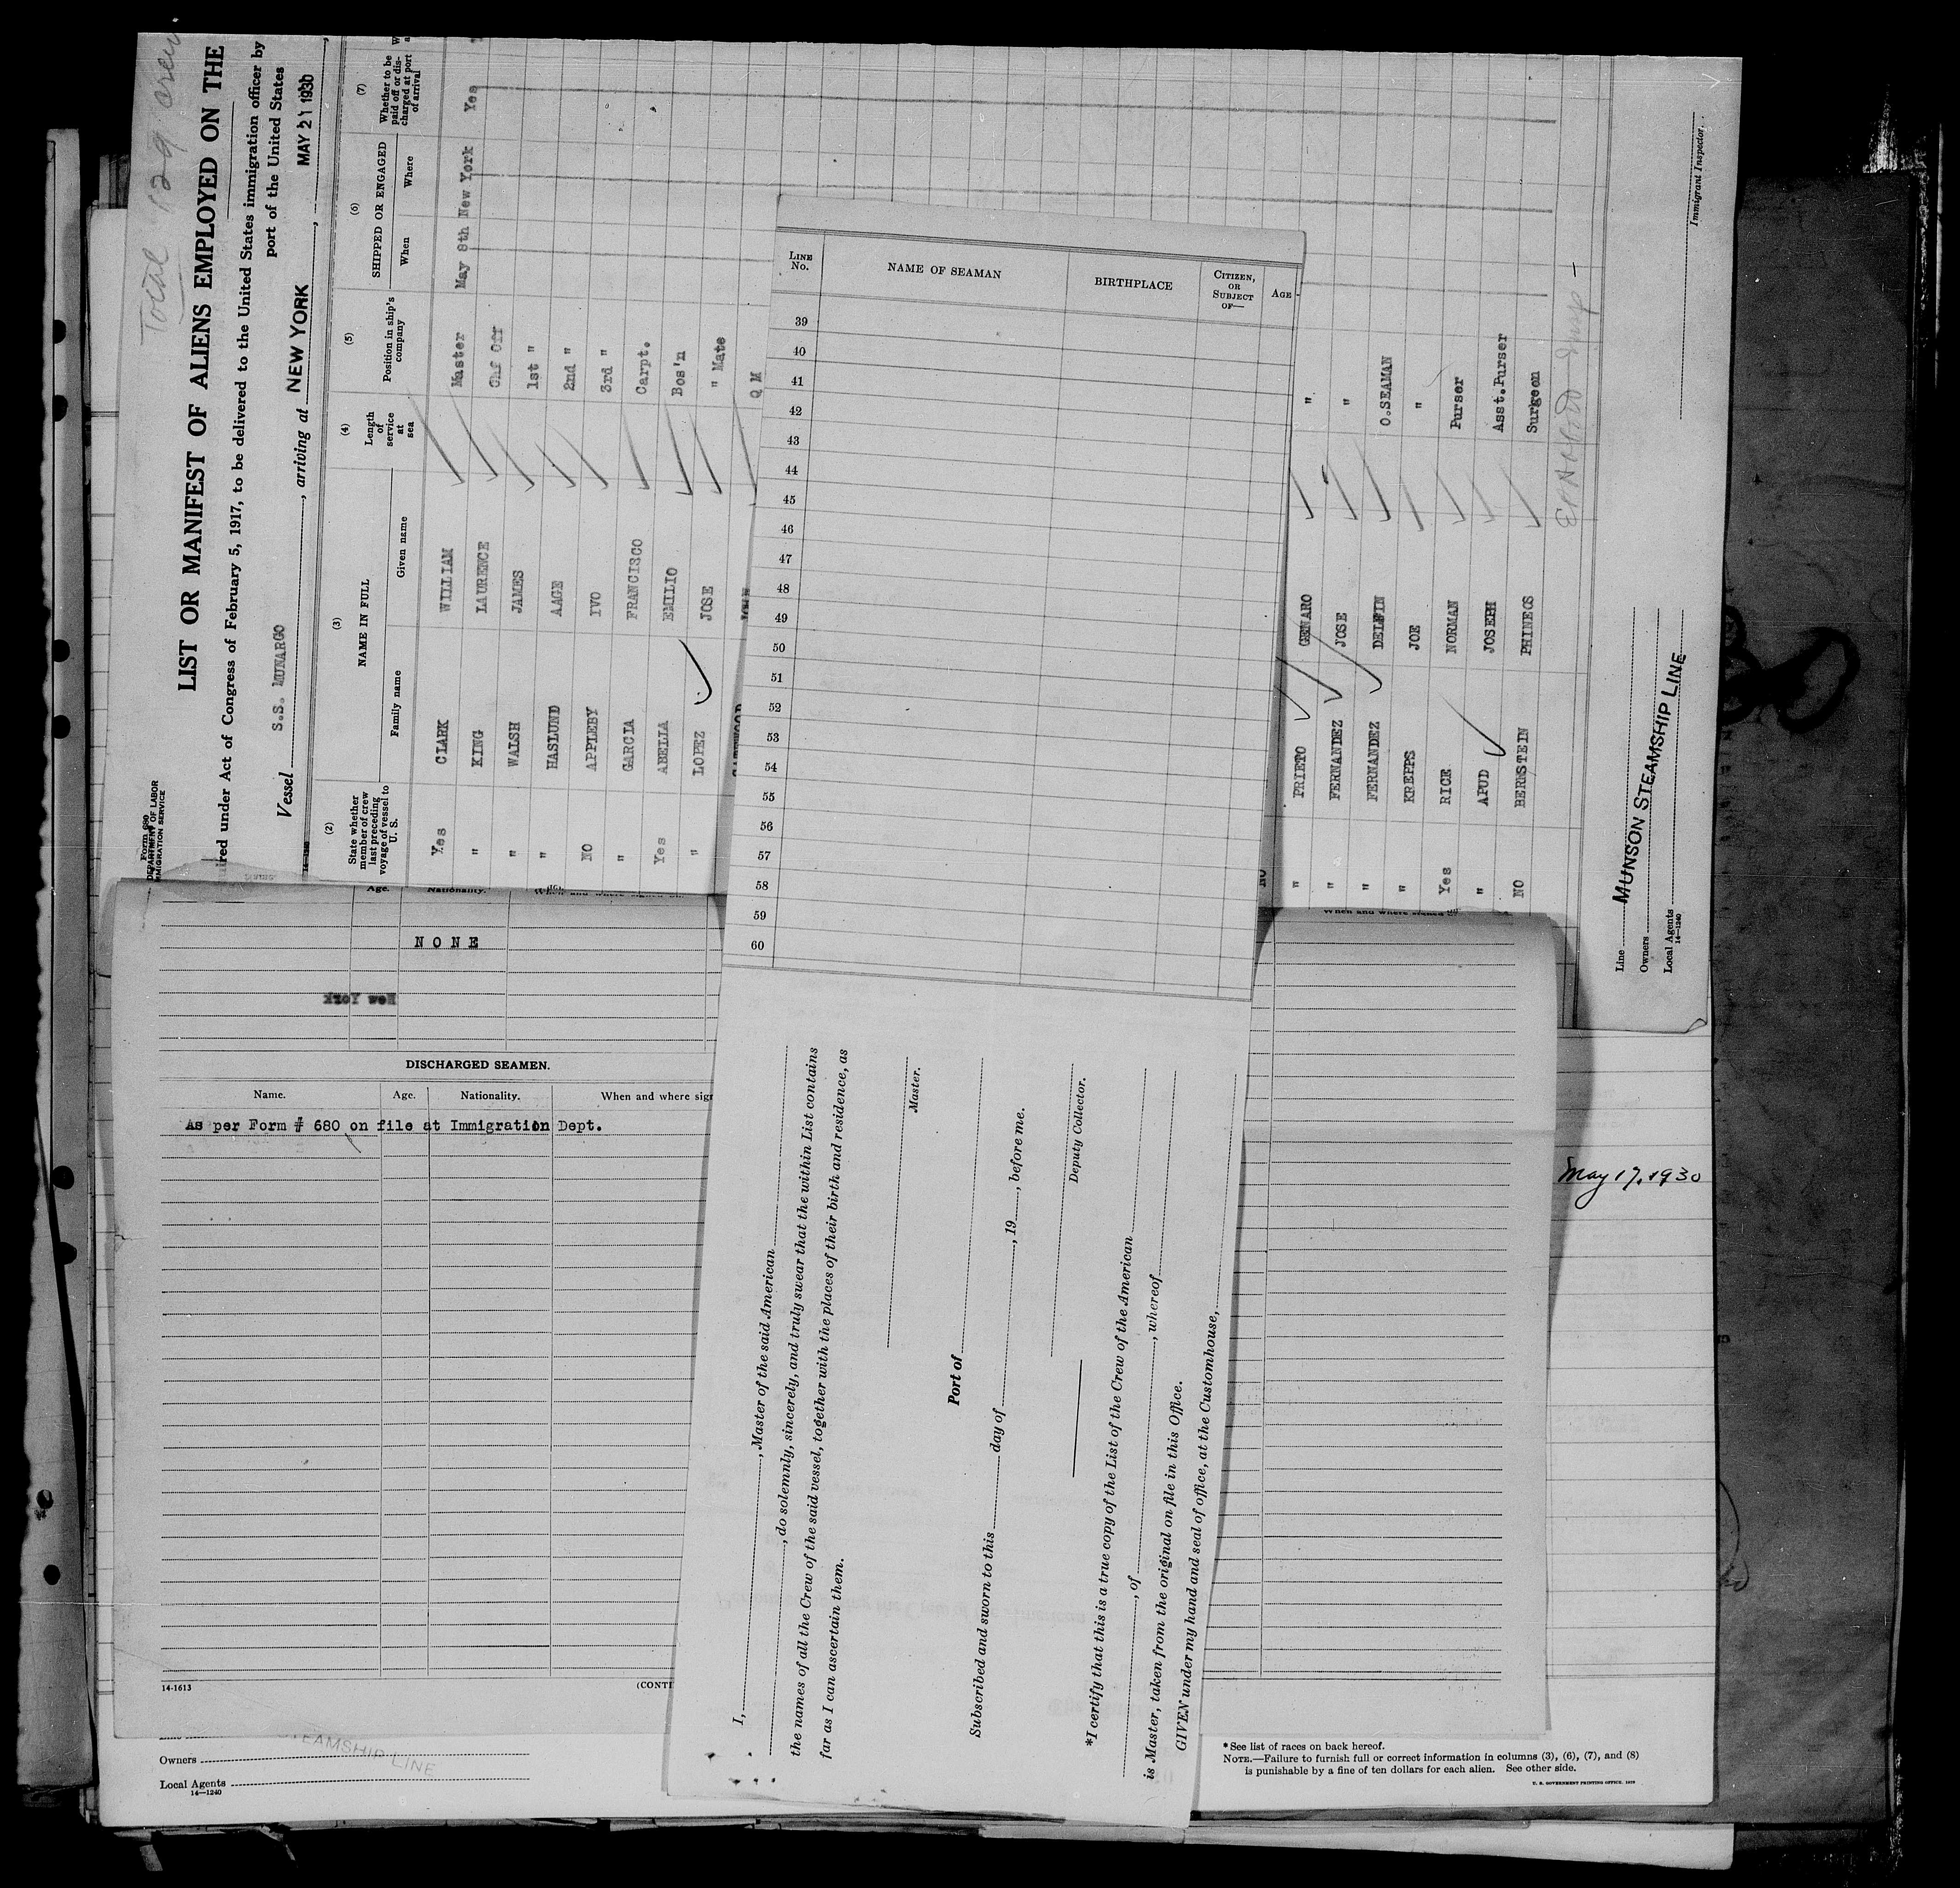 Total 129 crew
Form 680
DEPARTMENT OF LABOR
IMMIGRATION SERVICE
LIST OR MANIFEST OF ALIENS EMPLOYED ON THE
ired under Act of Congress of February 5, 1917, to be delivered to the United States immigration officer by
port of the United States
Vessel S.S. MUNARGO, arriving at NEW YORK, MAY 21 1930,
(2) (3) (4) (5) (6) (7)
State whether member of crew last preceding voyage of vessel to U. S.
NAME IN FULL
Family name Given name
Length of service at sea
Position in ship's company
SHIPPED OR ENGAGED
When Where
Whether to be paid off or discharged at port of arrival
Yes CLARK WILLIAM Master May 8th New York Yes
" KING LAURENCE Chf Off
" WALSH JAMES 1st "
" HASLUND AAGE 2nd "
NO APPLEBY IVO 3rd "
" GARCIA FRANCISCO Carpt.
Yes ABELLA EMILIO Bos'n
" LOPEZ JOSE " Mate
Q M
NO
" PRIETO GENARO "
" FERNANDEZ JOSE "
" FERNANDEZ DELFIN O.SEAMAN
" KREPPS JOE "
Yes RICE NORMAN Purser
" APUD JOSEPH Asst.Purser
NO BERNSTEIN PHINEOS Surgeon
Line MUNSON STEAMSHIP LINE
Owners
Local Agents
14—1240
Immigrant Inspector.
LINE No. NAME OF SEAMAN BIRTHPLACE CITIZEN, OR SUBJECT OF— AGE
39
40
41
42
43
44
45
46
47
48
49
50
51
52
53
54
55
56
57
58
59
60
I, , Master of the said American
, do solemnly, sincerely, and truly swear that the within List contains
the names of all the Crew of the said vessel, together with the places of their birth and residence, as
far as I can ascertain them.
Master.
Port of
Subscribed and sworn to this day of , 19 , before me.
Deputy Collector.
*I certify that this is a true copy of the List of the Crew of the American
, of , whereof
is Master, taken from the original on file in this Office.
GIVEN under my hand and seal of office, at the Customhouse,
Age. Nationality. When and where signed
NONE
New York
DISCHARGED SEAMEN.
Name. Age. Nationality. When and where sign
As per Form # 680 on file at Immigration Dept.
14-1613
(CONTI
When and where signed
May 17, 1930
STEAMSHIP LINE
Owners
Local Agents
14—1240
* See list of races on back hereof.
NOTE.—Failure to furnish full or correct information in columns (3), (6), (7), and (8)
is punishable by a fine of ten dollars for each alien. See other side.
U. S. GOVERNMENT PRINTING OFFICE: 1929